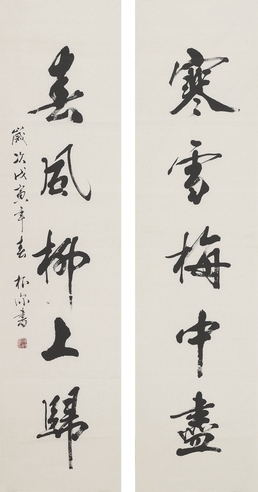 寒雪梅中盡
春風柳上歸
歲次戊寅年春 振深書